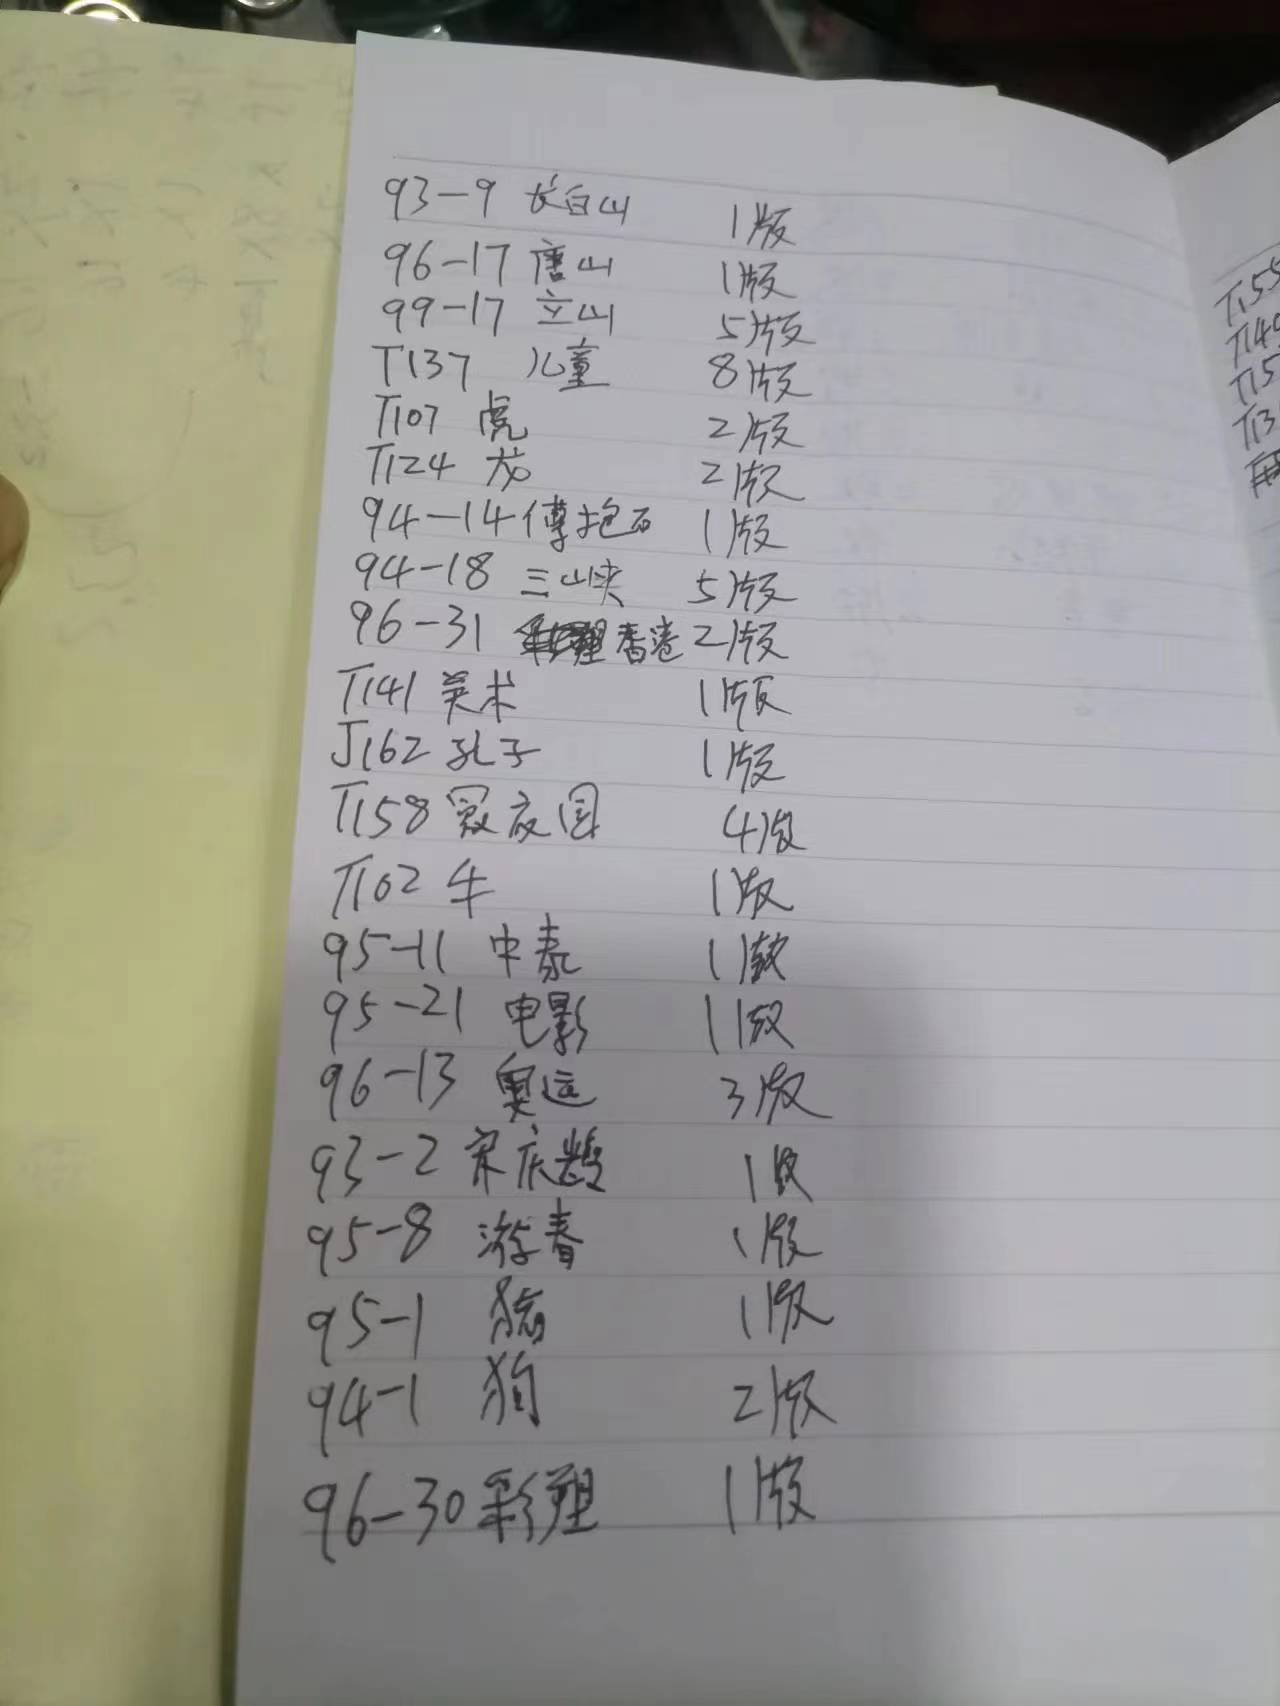 93-9 长白山 1版
96-17 唐山 1版
99-17 立山 5版
T137 儿童 8版
T107 虎 2版
T124 龙 2版
94-14 傅抱石 1版
94-18 三峡 5版
96-31 香港 2版
T141 美术 1版
J162 孔子 1版
T158 夜 4版
T102 牛 1版
95-11 中泰 1版
95-21 电影 1版
96-13 奥运 3版
93-2 宋庆龄 1版
95-8 游春 1版
95-1 猪 1版
94-1 狗 2版
96-30 彩塑 1版
T155
T149
T15
T13